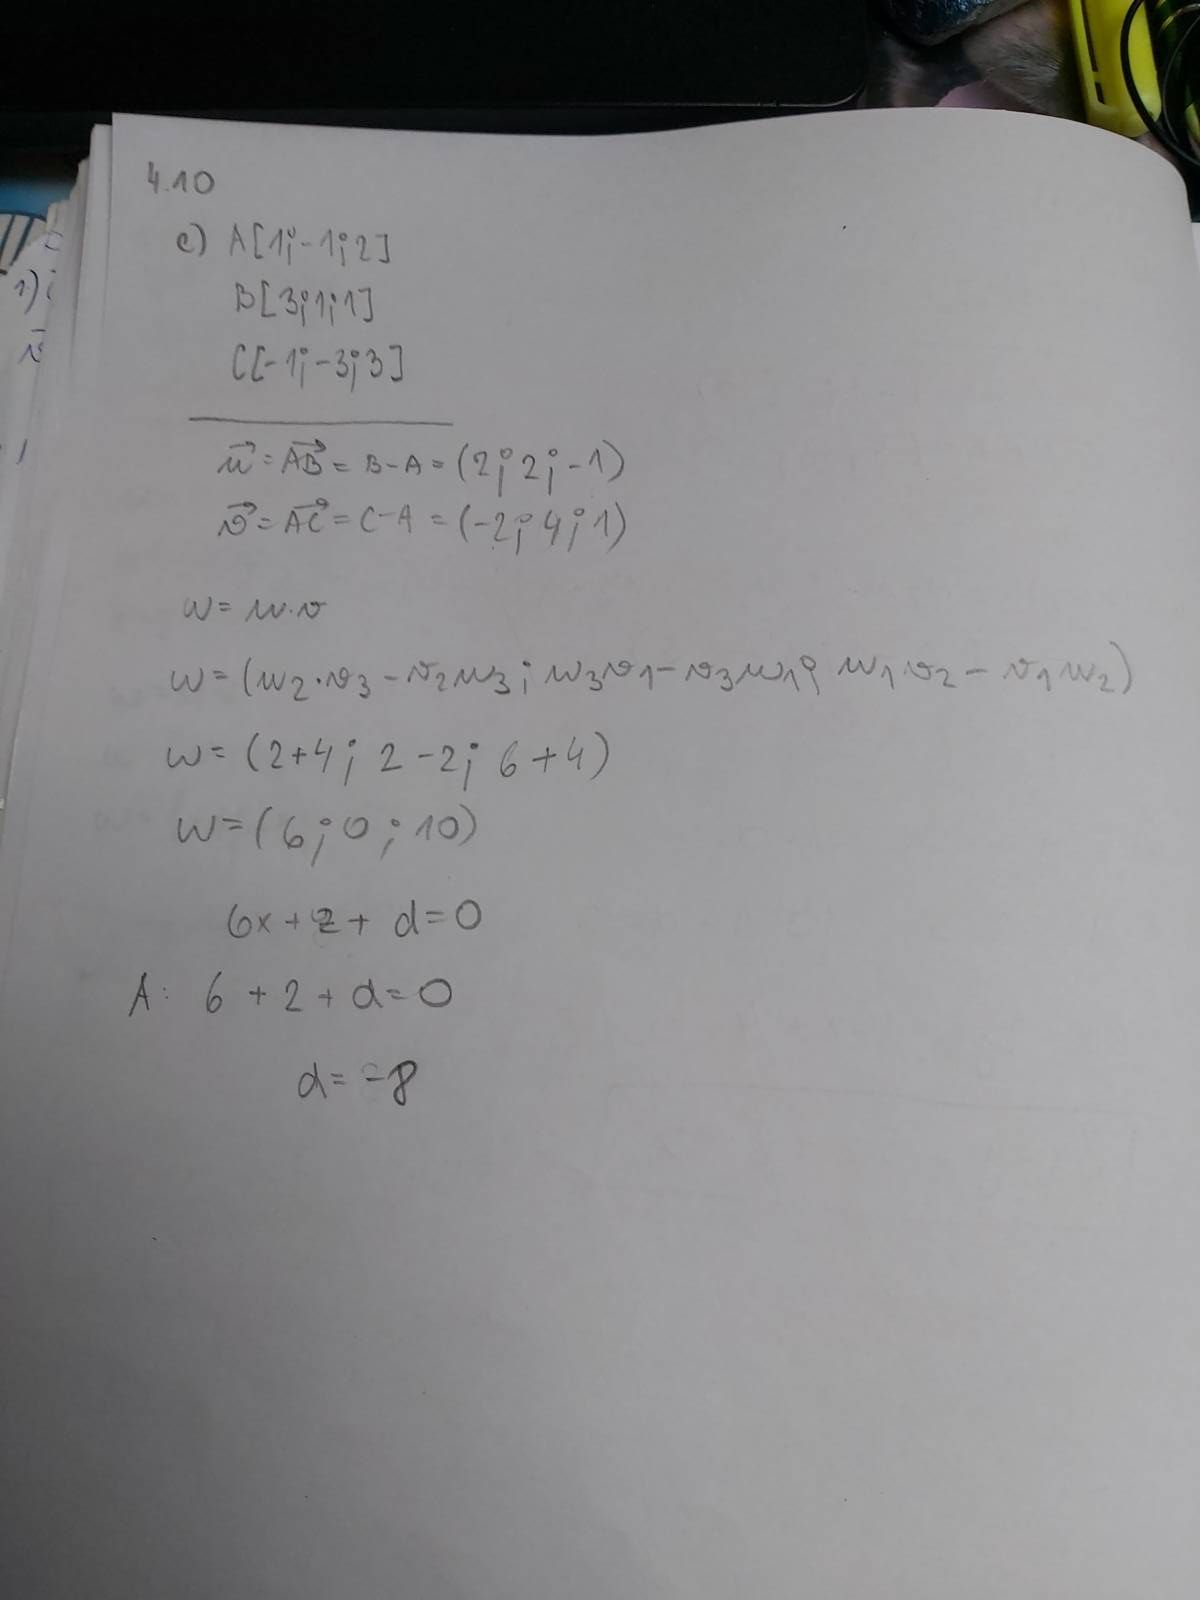 4.10
c) A[1;-1;2]
B[3;1;1]
C[-1;-3;3]
u⃗ = AB⃗ = B-A = (2;2;-1)
v⃗ = AC⃗ = C-A = (-2;4;1)
w = u·v
w = (u₂·v₃ - v₂u₃; u₃v₁ - v₃u₁; u₁v₂ - v₁u₂)
w = (2+4; 2-2; 6+4)
w = (6; 0; 10)
6x + z + d = 0
A: 6 + 2 + d = 0
d = -8
1)